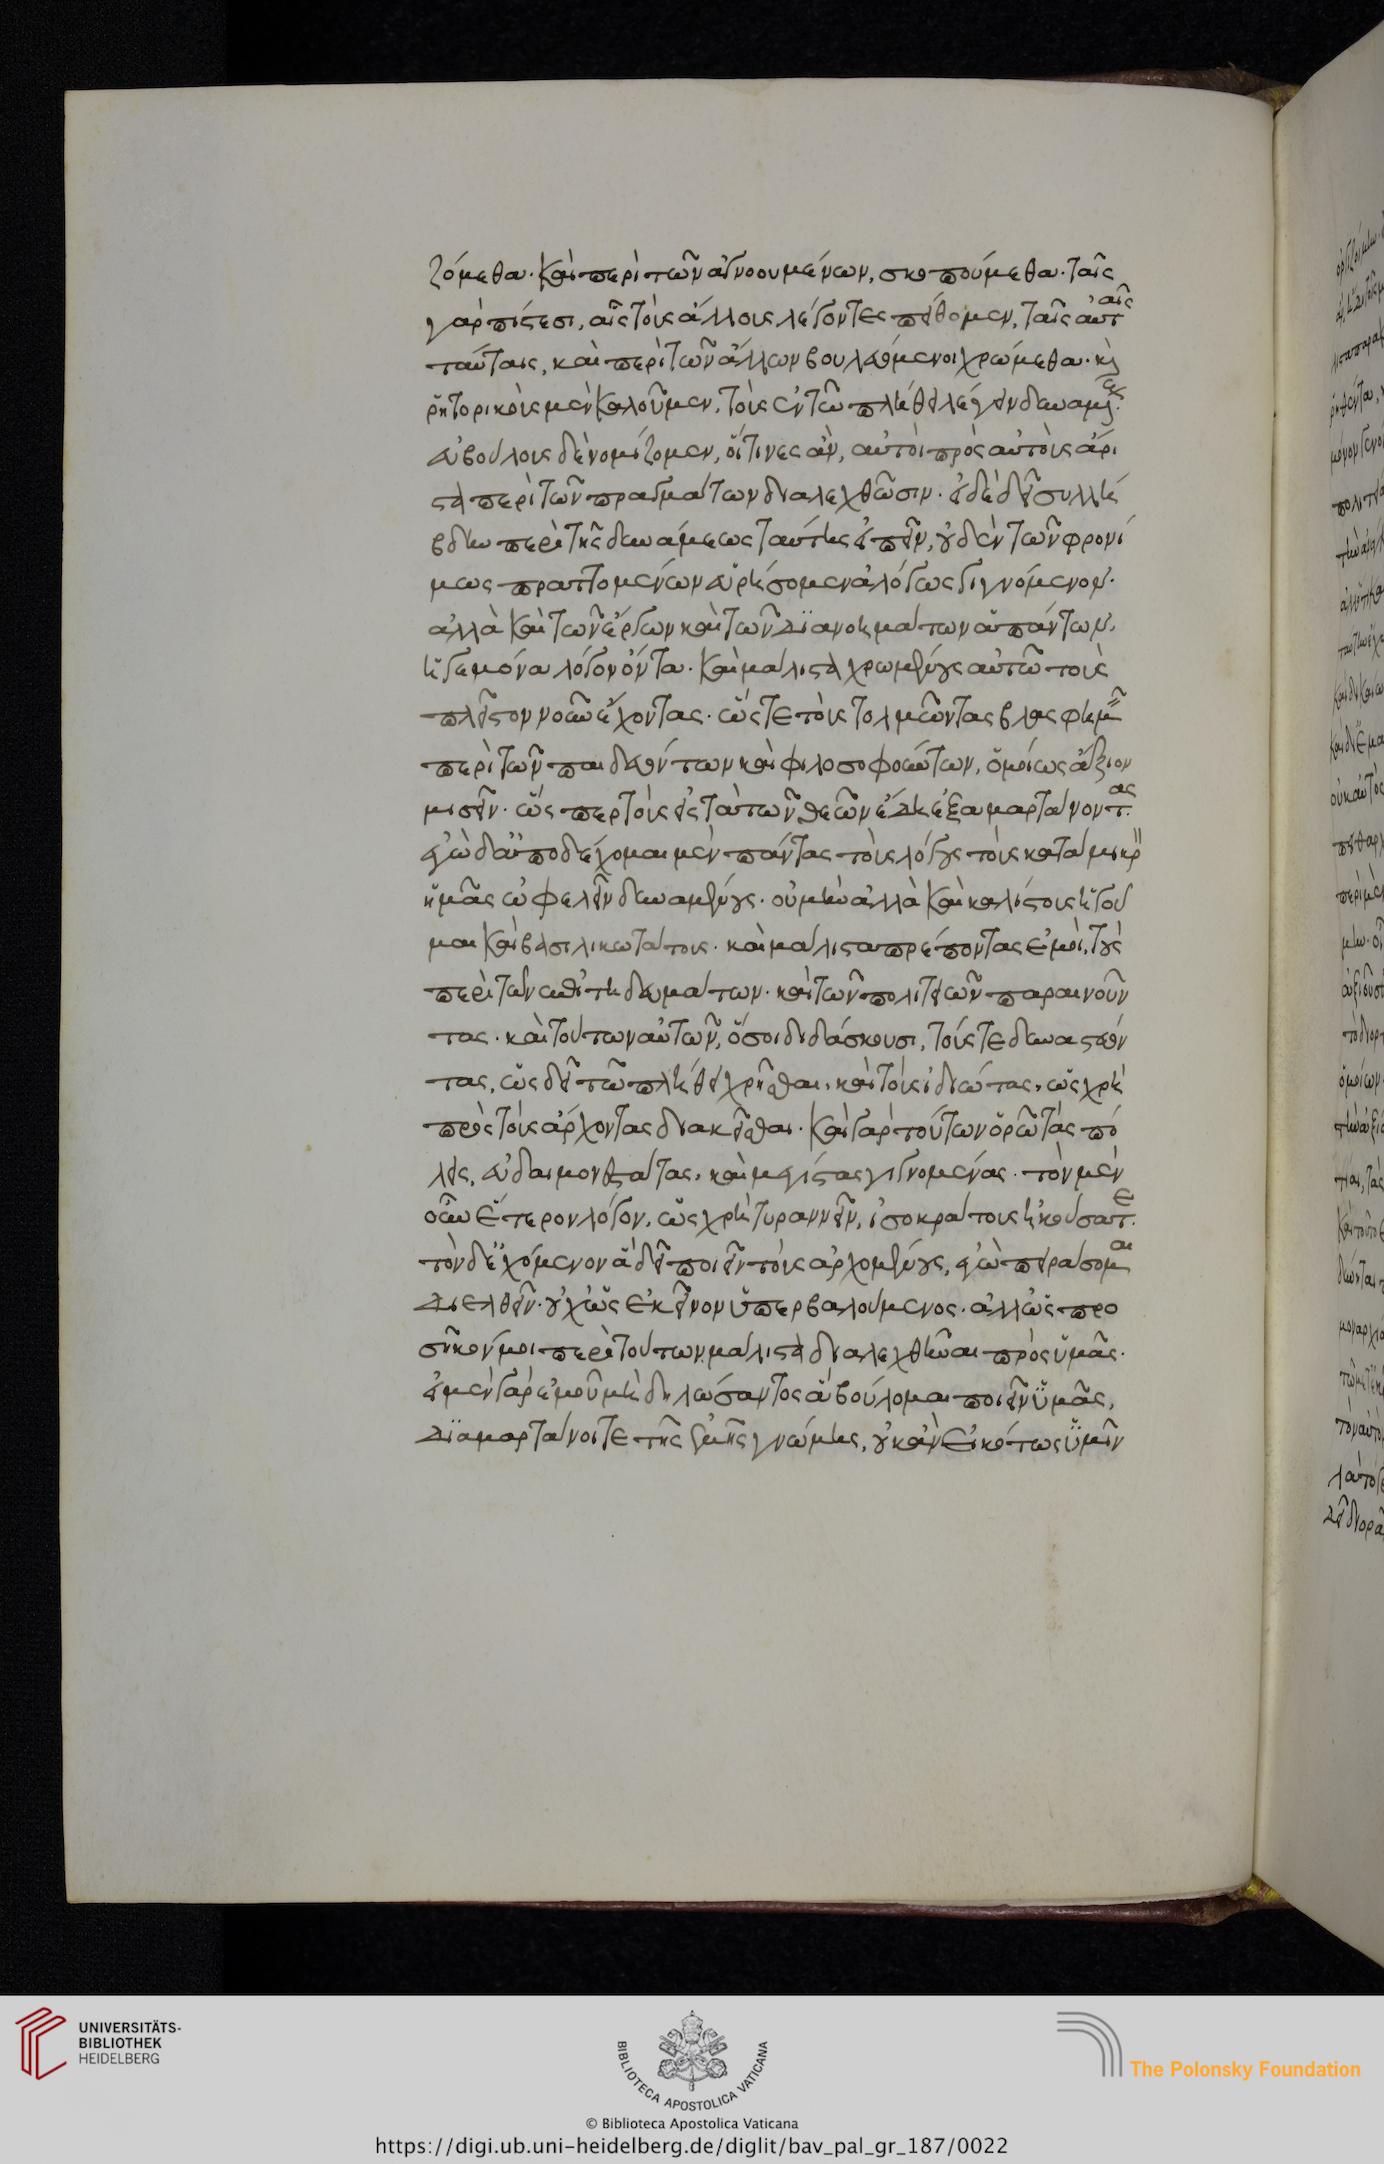 ζόμεθα· καὶ περὶ τῶν ἀγνοουμένων, σκοπούμεθα· ταῖς
γὰρ πίστεσι, αἷς τοὺς ἄλλους λέγοντες πείθομεν, ταῖς αὐταῖς
ταύταις, καὶ περὶ τῶν ἄλλων βουλευόμενοι χρώμεθα· κὶ
ῥητορικοὺς μὲν καλοῦμεν, τοὺς ἐν τῶ πλήθει λέγειν δυναμένους·
εὐβούλους δὲ νομίζομεν, οἵτινες ἂν, αὐτοὶ πρὸς αὐτοὺς ἄρι
στα περὶ τῶν πραγμάτων διαλεχθῶσιν· εἰ δὲ δεῖ συλλή
βδην περὶ τῆς δυνάμεως ταύτης εἰπεῖν, οὐδὲν τῶν φρονί
μως πραττομένων εὑρήσομεν ἀλόγως γιγνόμενον·
ἀλλὰ καὶ τῶν ἔργων καὶ τῶν διανοημάτων ἁπάντων,
ἡγεμόνα λόγον ὄντα· καὶ μάλιστα χρωμένους αὐτῶ τοὺς
πλεῖστον νοῦν ἔχοντας· ὥστε τοὺς τολμῶντας βλασφημεῖν
περὶ τῶν παιδευόντων καὶ φιλοσοφούντων, ὁμοίως ἄξιον
μισεῖν· ὥσπερ τοὺς εἰς τὰ τῶν θεῶν ἕδη ἐξαμαρτάνοντας·
ἐγὼ δ' ἀποδέχομαι μὲν πάντας τοὺς λόγους τοὺς κατὰ μικρὸν
ἡμᾶς ὠφελεῖν δυναμένους· οὐ μὴν ἀλλὰ καὶ καλίστους ἡγοῦ
μαι καὶ βασιλικωτάτους· καὶ μάλιστα πρέποντας ἐμοὶ, τοὺς
περὶ τῶν ἐπιτηδευμάτων· καὶ τῶν πολιτειῶν παραινοῦν
τας· καὶ τούτων αὐτῶν, ὅσοι διδάσκουσι, τούς τε δυναστεύον
τας, ὡς δεῖ τῶ πλήθει χρῆσθαι, καὶ τοὺς ἰδιώτας, ὡς χρὴ
πρὸς τοὺς ἄρχοντας διακεῖσθαι· καὶ γὰρ τούτων ὁρῶ τὰς πό
λεις, εὐδαιμονεστάτας, καὶ μεγίστας γιγνομένας· τὸν μὲν
οὖν ἕτερον λόγον, ὡς χρὴ τυραννεῖν, ἰσοκράτους ἠκούσατε·
τὸν δ' ἐχόμενον ἃ δεῖ ποιεῖν τοὺς ἀρχομένους, ἐγὼ πειράσομαι
διελθεῖν· οὐχ ὡς ἐκεῖνον ὑπερβαλούμενος· ἀλλ' ὡς προ
σῆκόν μοι περὶ τούτων μάλιστα διαλεχθῆναι πρὸς ὑμᾶς·
εἰ μὲν γὰρ ἐμοῦ μὴ δηλώσαντος ἃ βούλομαι ποιεῖν ὑμᾶς,
διαμαρτάνοιτε τῆς ἐμῆς γνώμης, οὐκ ἂν εἰκότως ὑμῖν
UNIVERSITÄTS-
BIBLIOTHEK
HEIDELBERG
BIBLIOTECA APOSTOLICA VATICANA
The Polonsky Foundation
© Biblioteca Apostolica Vaticana
https://digi.ub.uni-heidelberg.de/diglit/bav_pal_gr_187/0022